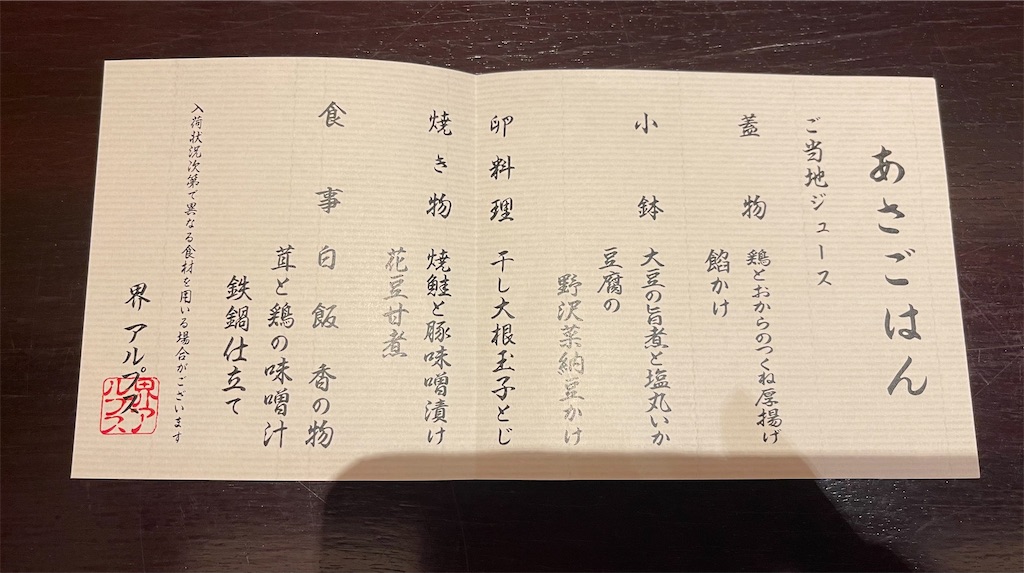 あさごはん
ご当地ジュース
蓋物
鶏とおからのつくね厚揚げ
餡かけ
小鉢
大豆の旨煮と塩丸いか
豆腐の
野沢菜納豆かけ
卵料理 干し大根玉子とじ
焼き物 焼鮭と豚味噌漬け
花豆甘煮
食事 白飯 香の物
茸と鶏の味噌汁
鉄鍋仕立て
入荷状況次第で異なる食材を用いる場合がございます
界 アルプス
界アルプス